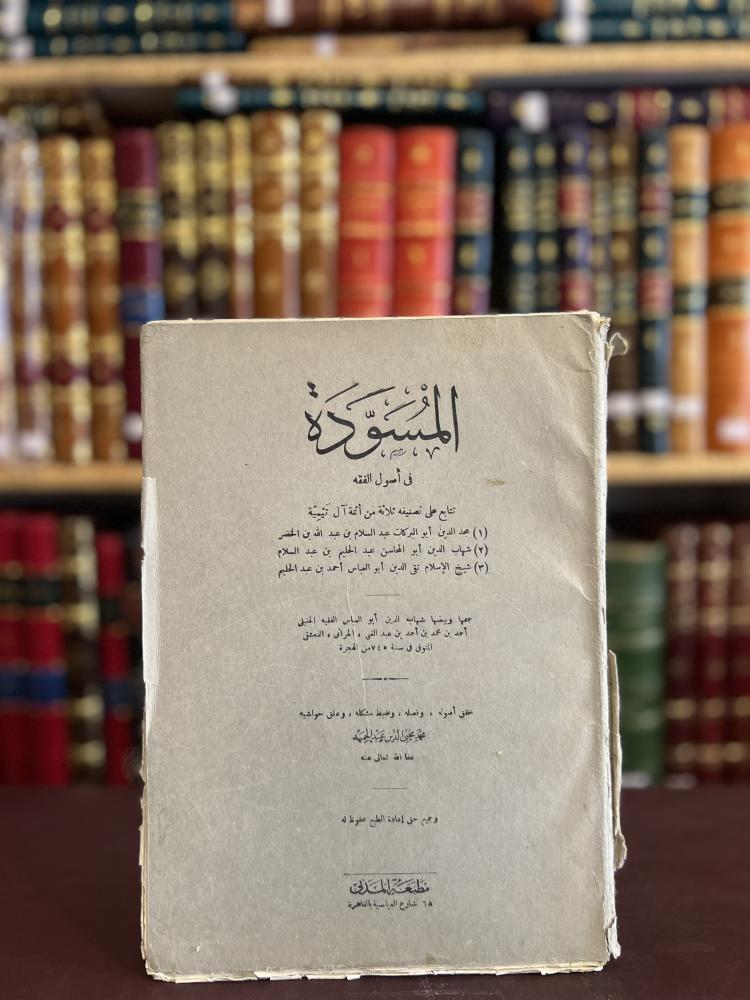 المُسَوَّدَة
فى أصول الفقه
تتابع على تصنيفه ثلاثة من أئمة آل تَيْمِيَّة
(١) مجد الدين أبو البركات عبد السلام بن عبد الله بن الخضر
(٢) شهاب الدين أبو المحاسن عبد الحليم بن عبد السلام
(٣) شيخ الإسلام تقى الدين أبو العباس أحمد بن عبد الحليم
جمعها وبيضها شهاب الدين أبو العباس الفقيه الحنبلى
أحمد بن محمد بن أحمد بن عبد الغنى ، الحرانى ، الدمشقى
المتوفى فى سنة ٧٤٥ من الهجرة
حقق أصوله ، وفصله ، وضبط مشكله ، وعلق حواشيه
محمد محيى الدين عبد الحميد
عفا الله تعالى عنه
وجميع حق إعادة الطبع محفوظ له
مطبعة المدنى
٦٨ شارع العباسية بالقاهرة